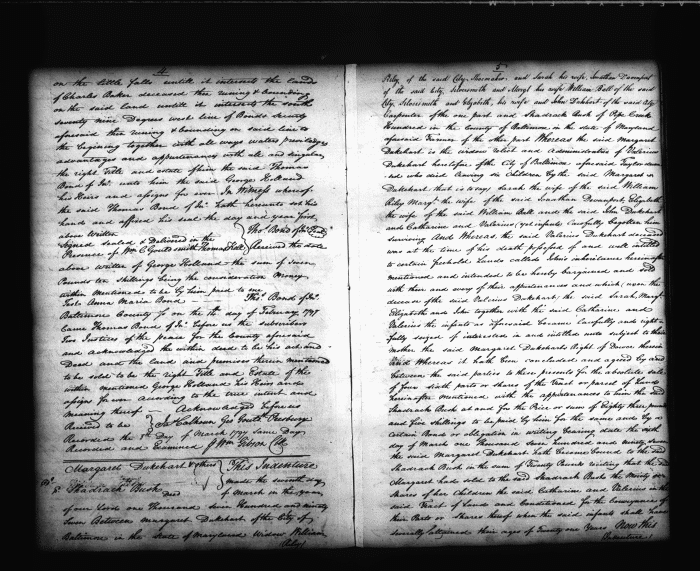 4
on the little falls untill it intersects the lands
of Charles Baker deceased then runing & bounding
on the said land untill it intersects the south
seventy nine Degrees west line of Bonds security
aforesaid then runing & bounding on said line to
the begining together with all ways waters priviledges
advantages and appurtenances with all and singular
the right Title and estate of him the said Thomas
Bond of Jno. unto him the said George Holland
his Heirs and assigns for ever In Witness whereof
the said Thomas Bond of Jno. hath hereunto set his
hand and affixed his seal the day and year first
above Written Thos. Bond of Jno. Seal
Signed sealed & Delivered in the
Presence of Wm. Received the date
above written of George Holland the sum of seven
Pounds ten shillings being the consideration money
within mentioned to be by him paid to me
Teste Anna Maria Bond Thos. Bond of Jno.
Baltimore County Sc on the day of February 1797
Came Thomas Bond of Jno. before us the subscribers
Two Justices of the peace for the County aforesaid
and acknowledged the within deed to be his act and
Deed and the land and premises therein mentioned
to be sold to be the right Title and Estate of the
within mentioned George Holland his Heirs and
assigns for ever according to the true intent and
meaning thereof Acknowledged before us
Received to be
Recorded the day of March 1797 Same Day
Recorded and Examined Wm. Gibson Clk
Margaret Dukehart & others This Indenture
to Deed made the seventh day
Shadrach Bush of March in the year
of our Lord one Thousand seven Hundred and ninety
seven Between Margaret Dukehart of the City of
Baltimore in the State of Maryland Widow William
Riley
5
Riley of the said City Shoemaker and Sarah his wife, Jonathan Davenport
of the said City, and Mary his wife William Ball of the said
City Silversmith and Elizabeth his wife and John Dukehart of the said City
Carpenter of the one part and Shadrach Bush of Pipe Creek
Hundred in the County of Baltimore in the state of Maryland
aforesaid Farmer of the other part Whereas the said Margaret
Dukehart is the widow and Administratrix of Valerius
Dukehart heretofore of the City of Baltimore aforesaid Taylor deceas
ed who died leaving six Children by the said Margaret
Dukehart that is to say, Sarah the wife of the said William
Riley Mary the wife of the said Jonathan Davenport, Elizabeth
the wife of the said William Ball and the said John Dukehart
and Catharine and Valerius, yet infants lawfully begotten him
surviving And Whereas the said Valerius Dukehart deceased
was at the time of his death possessed of and well intitled
to certain freehold Lands called John's inheritance hereinafter
mentioned and intended to be hereby bargained and sold
with their and every of their appurtenances and which upon the
decease of the said Valerius Dukehart the said Sarah, Mary
Elizabeth and John together with the said Catharine and
Valerius the infants as aforesaid became lawfully and right
fully seized of interested in and intitled unto subject to their
mother the said Margaret Dukeharts Right of Dower therein
And Whereas it hath been concluded and agreed by and
between the said parties to these presents for the absolute sale
of four sixth parts or shares of the Tract or parcel of Lands
hereinafter mentioned with the appurtenances to him the said
Shadrach Bush at and for the Price or sum of Eighty three pounds
and five shillings to be paid by him for the same and by a
certain Bond or obligation in writing bearing date the sixth
day of March one Thousand seven hundred and ninety seven
the said Margaret Dukehart hath become bound to the said
Shadrach Bush in the sum of Twenty Pounds reciting that the said
Margaret had sold to the said Shadrach Bush the
shares of her Children the said Catharine and Valerius in the
said Tract of Land and Conditioned for the Conveyance of
their Parts or Shares thereof when the said infants shall have
severally attained their ages of Twenty one Years Now this
Indenture